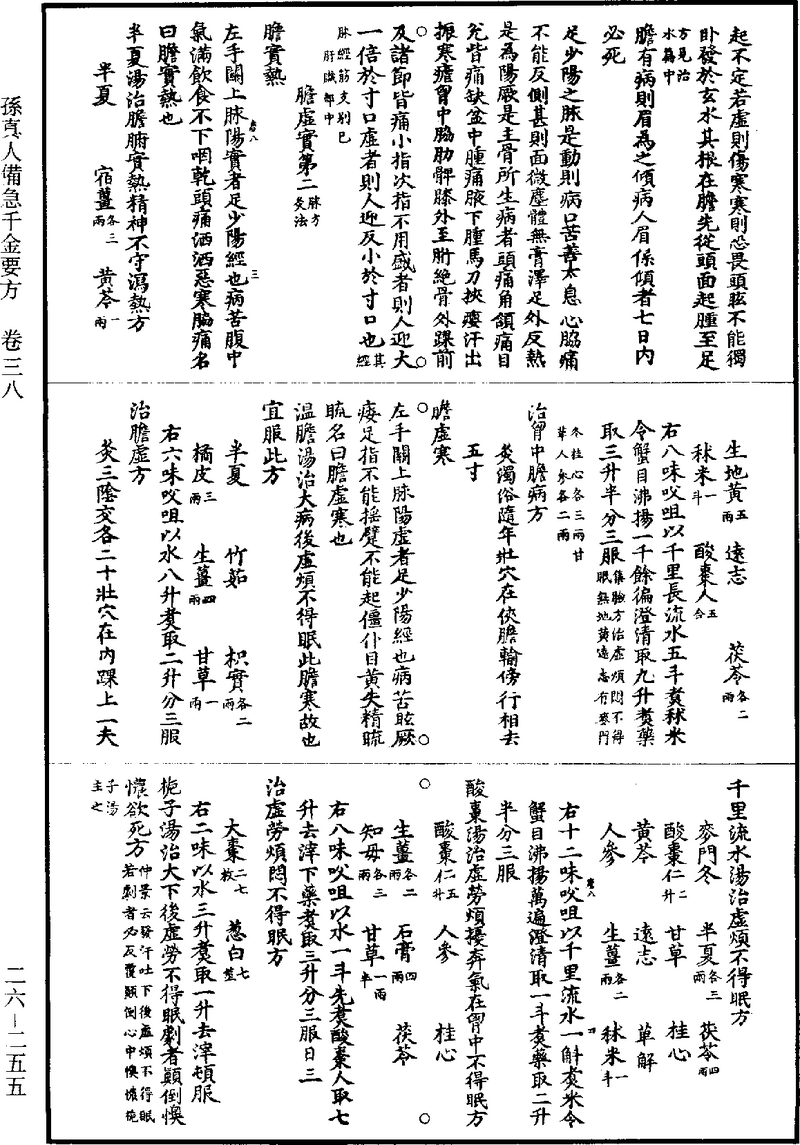 起不定若虛則傷寒寒則恐畏頭眩不能獨
臥發於玄水其根在膽先從頭面起腫至足
方見治水篇中
膽有病則眉為之傾病人眉係傾者七日內
必死
足少陽之脉是動則病口苦善太息心脇痛
不能反側甚則面微塵體無膏澤足外反熱
是為陽厥是主骨所生病者頭痛角頷痛目
兌皆痛缺盆中腫痛腋下腫馬刀挾癭汗出
振寒瘧胷中脇肋髀膝外至胻絕骨外踝前
及諸節皆痛小指次指不用盛者則人迎大
一倍於寸口虛者則人迎反小於寸口也其經
脉經筋支別已見肝臟部中
膽虛實第二 脉方灸法
膽實熱
左手關上脉陽實者足少陽經也病苦腹中
卷八 三
氣滿飲食不下咽乾頭痛洒洒惡寒脇痛名
曰膽實熱也
半夏湯治膽腑實熱精神不守瀉熱方
半夏 宿薑各三兩 黃芩一兩
生地黃五兩 遠志 茯苓各二兩
秫米一斗 酸棗人五合
右八味㕮咀以千里長流水五斗煑秫米
令蟹目沸揚一千餘徧澄清取九升煑藥
取三升半分三服集驗方治虛煩悶不得眠無地黃遠志有麥門
冬桂心各三兩甘草人參各二兩
治胷中膽病方
灸濁俗隨年壯穴在俠膽輸傍行相去
五寸
膽虛寒
左手關上脉陽虛者足少陽經也病苦眩厥
痿足指不能搖躄不能起僵仆目黃失精䀮
䀮名曰膽虛寒也
溫膽湯治大病後虛煩不得眠此膽寒故也
宜服此方
半夏 竹茹 枳實各二兩
橘皮三兩 生薑四兩 甘草一兩
右六味㕮咀以水八升煑取二升分三服
治膽虛方
灸三陰交各二十壯穴在內踝上一夫
千里流水湯治虛煩不得眠方
麥門冬 半夏各三兩 茯苓四兩
酸棗仁二升 甘草 桂心
黃芩 遠志 萆解
人參 生薑各二兩 秫米一斗
卷八 四
右十二味㕮咀以千里流水一斛煑米令
蟹目沸揚萬遍澄清取一斗煑藥取二升
半分三服
酸棗湯治虛勞煩擾奔氣在胷中不得眠方
酸棗仁五升 人參 桂心
生薑各二兩 石膏四兩 茯苓
知母各三兩 甘草一兩半
右八味㕮咀以水一斗先煑酸棗人取七
升去滓下藥煑取三升分三服日三
治虛勞煩悶不得眠方
大棗二七枚 葱白七莖
右二味以水三升煑取一升去滓頓服
梔子湯治大下後虛勞不得眠劇者顛倒懊
憹欲死方仲景云發汗吐下後虛煩不得眠若劇者必反覆顛倒心中懊憹梔
子湯主之
孫真人備急千金要方 卷三八
二六－二五五